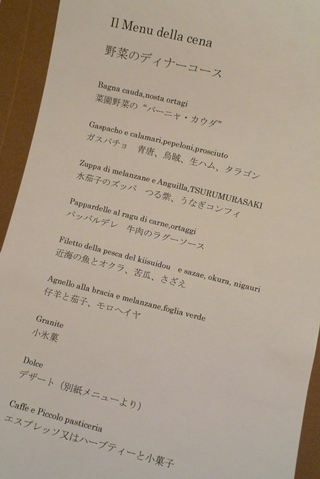 Il Menu della cena
野菜のディナーコース
Bagna cauda,nosta ortagi
菜園野菜の“バーニャ・カウダ”
Gaspacho e calamari,pepeloni,prosciuto
ガスパチョ　青唐、烏賊、生ハム、タラゴン
Zuppa di melanzane e Anguilla,TSURUMURASAKI
水茄子のズッパ　つる紫、うなぎコンフィ
Pappardelle al ragu di carne,ortaggi
パッパルデレ　牛肉のラグーソース
Filetto della pesca del kiisuidou　e sazae, okura, nigauri
近海の魚とオクラ、苦瓜、さざえ
Agnello alla bracia e melanzane,foglia verde
仔羊と茄子、モロヘイヤ
Granite
小氷菓
Dolce
デザート（別紙メニューより）
Caffe e Piccolo pasticeria
エスプレッソ又はハーブティーと小菓子